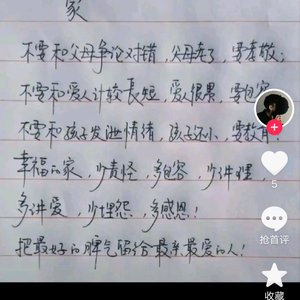 家
不要和父母争论对错，父母老了，要孝敬；
不要和爱人计较长短，爱很累，要包容
不要和孩子发泄情绪，孩子还小，要教育！
幸福的家，少责怪，多包容，少讲理，
多讲爱，少埋怨，多感恩！
把最好的脾气留给最亲最爱的人！
5
抢首评
收藏